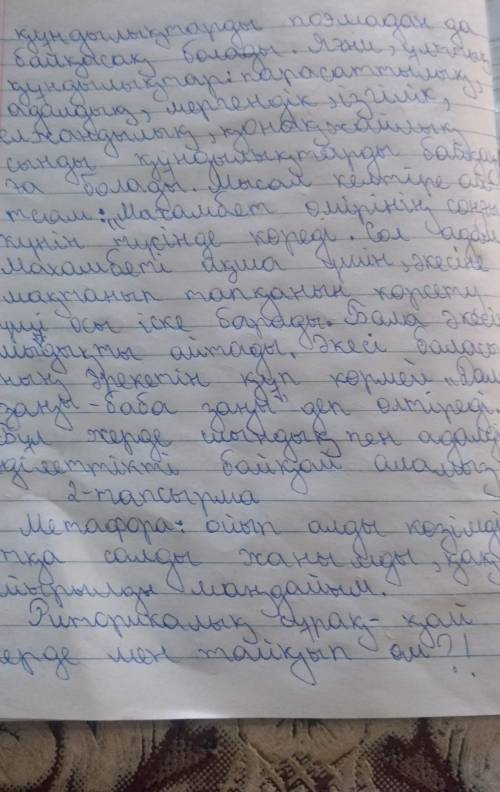 құндылықтарды поэмадан да
байқасақ болады. Яғни, ұлттық
құндылықтар: парасаттылық,
адалдық, мергендік, ізгілік,
елжандылық, қонақжайлық
сынды құндылықтарды байқау
ға болады. Мысал келтіре ай
тсам: "Махамбет өмірінің соңғы
күнін түсінде көреді. Сол адам
Махамбетті ақша үшін, әкесіне
мақтанып тапқанын көрсету
үшін осы іске барады. Бала әкесіне
шындықты айтады. Әкесі баласы
ның әрекетін құп көрмей "Дала
заңы - баба заңы" деп өлтіреді.
Бұл жерде шындық пен адалд
ділеттікті байқай аламыз
2-тапсырма
Метафора: ойып алды көзімді
тқа салды жанымды, қақ
йырылды маңдайым.
Риторикалық сұрақ - қай
жерде мен тайқып ем?!